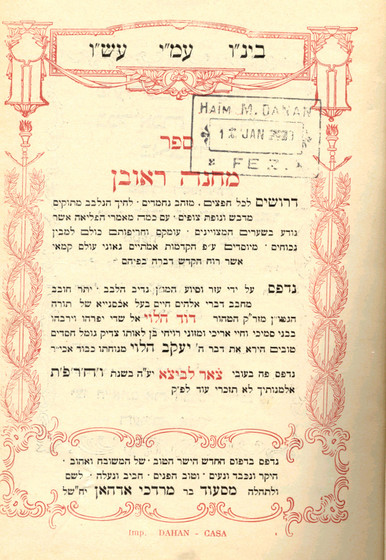 בי"נ"ו עמ"י עש"ו
HAIM M. DAHAN
JAN
FEZ.
ספר
מחנה ראובן
דרושים לכל חפציהם, מזהב נחמדים · לחיך הנלבב מתוקים
מדבש ונופת צופים · עם כמה מאמרי הפליאה אשר
נודע בשערים המצויינים · עומקם וחריפותם כולם למבין
נכוחים · מיוסדים ע״פ הקדמות אמתיים גאוני עולם קמאי
אשר רוח הקדש דברה בפיהם ·
נדפס על ידי עזר וסיוע המו״ן נדיב הלבב · יתר חובב
מחבב דברי אלהים חיים בעל אכסנייא של תורה
הגפן מוד״ק המהור דוד הלוי אל שדי יפרהו וירבהו
בבני סמיכי וחיי אריכי ומזוני רויחי בן לאותו צדיק גומל חסדים
טובים הירא את דבר ה׳ יעקב הלוי מנוחתו כבוד אכי״ר
נדפס פה בעובי צאר לביצא יע״ה בשנת וחרפת
אלמנותיך לא תזכרי עוד לפ״ק
נדפס בדפוס החדש הישר הטוב · של המשובח ואהוב ·
היקר ונכבד ונעים · וטוב הפנים · חביב ונעלה · לשם
ולתהלה מסעוד בר מרדכי אדהאן יח״של
Imp. DAHAN - CASA